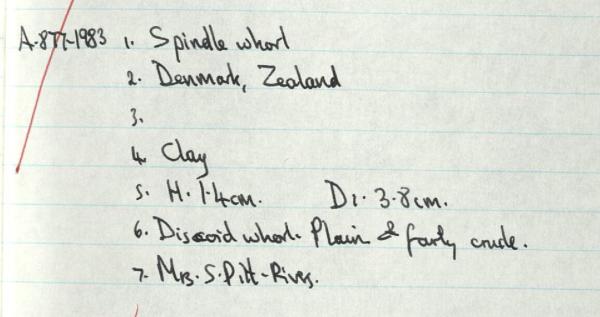 A.877-1983 1. Spindle whorl
2. Denmark, Zealand
3.
4. Clay
5. H. 1.4cm. Di. 3.8cm.
6. Discoid whorl. Plain & fairly crude.
7. Mrs. S. Pitt-Rivers.